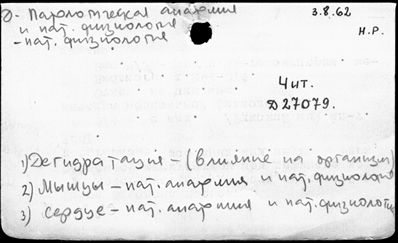 Патологическая анатомия
и пат. физиология
- пат. физиология
3.8.62
Н.Р.
Чит.
Д 27079.
1) Дегидратация - (влияние на организм)
2) Мышцы - пат. анатомия и пат. физиология
3) Сердце - пат. анатомия и пат. физиология